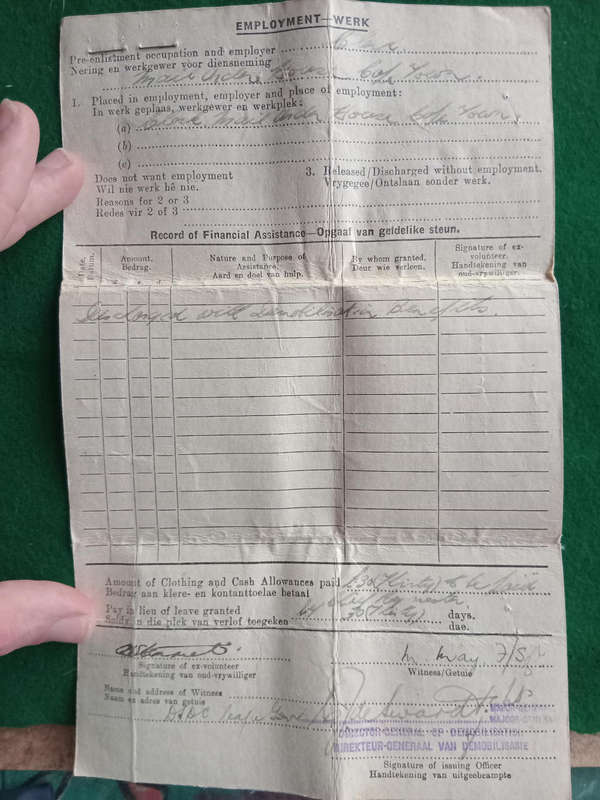 EMPLOYMENT—WERK
Pre-enlistment occupation and employer
Nering en werkgewer voor diensneming
Mail Order House Cape Town.
1. Placed in employment, employer and place of employment:
In werk geplaas, werkgewer en werkplek:
(a) Mail Order House Cape Town.
(b)
(c)
Does not want employment
Wil nie werk hê nie.
3. Released/Discharged without employment.
Vrygegee/Ontslaan sonder werk.
Reasons for 2 or 3
Redes vir 2 of 3
Record of Financial Assistance—Opgaaf van geldelike steun.
Date. Datum.
Amount. Bedrag.
Nature and Purpose of Assistance. Aard en doel van hulp.
By whom granted. Deur wie verleen.
Signature of ex-volunteer. Handtekening van oud-vrywilliger.
Discharged with Demobilisation Benefits.
Amount of Clothing and Cash Allowances paid £30 (Thirty) to be paid
Bedrag aan klere- en kontanttoelae betaal
Pay in lieu of leave granted 30 (Thirty) days.
Soldy in die plek van verlof toegeken dae.
Signature of ex-volunteer
Handtekening van oud-vrywilliger
M May
Witness/Getuie
Name and address of Witness
Naam en adres van getuie
DIRECTOR-GENERAL OF DEMOBILISATION
DIREKTEUR-GENERAAL VAN DEMOBILISASIE
Signature of issuing Officer
Handtekening van uitgeebeampte